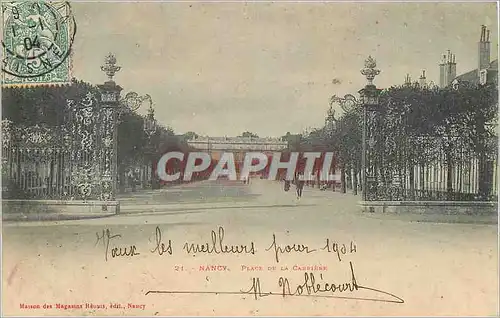 04
CAPHIL
Vœux les meilleurs pour 1904
21. - NANCY. PLACE DE LA CARRIÈRE
M Noblécourt
Maison des Magasins Réunis, édit., Nancy